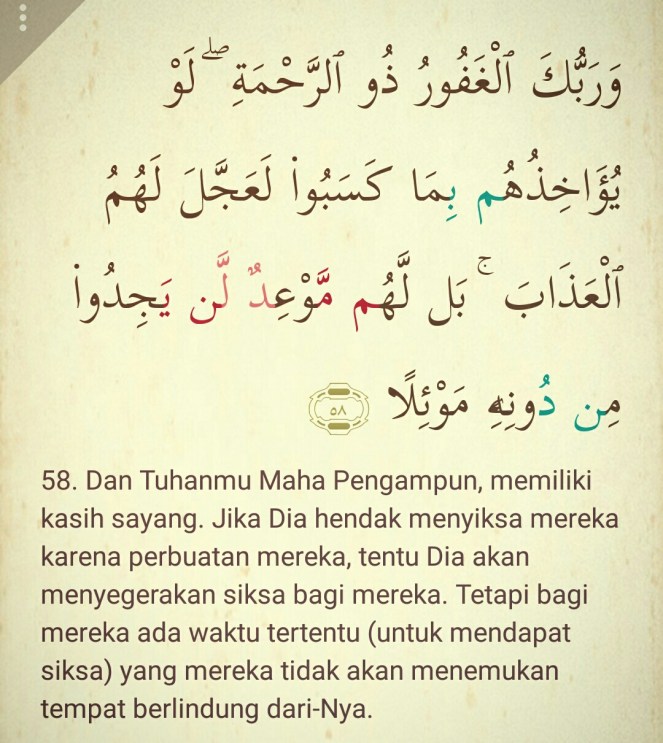 وَرَبُّكَ ٱلْغَفُورُ ذُو ٱلرَّحْمَةِ ۖ لَوْ
يُؤَاخِذُهُم بِمَا كَسَبُوا۟ لَعَجَّلَ لَهُمُ
ٱلْعَذَابَ ۚ بَل لَّهُم مَّوْعِدٌ لَّن يَجِدُوا۟
مِن دُونِهِۦ مَوْئِلًا ٥٨
58. Dan Tuhanmu Maha Pengampun, memiliki
kasih sayang. Jika Dia hendak menyiksa mereka
karena perbuatan mereka, tentu Dia akan
menyegerakan siksa bagi mereka. Tetapi bagi
mereka ada waktu tertentu (untuk mendapat
siksa) yang mereka tidak akan menemukan
tempat berlindung dari-Nya.